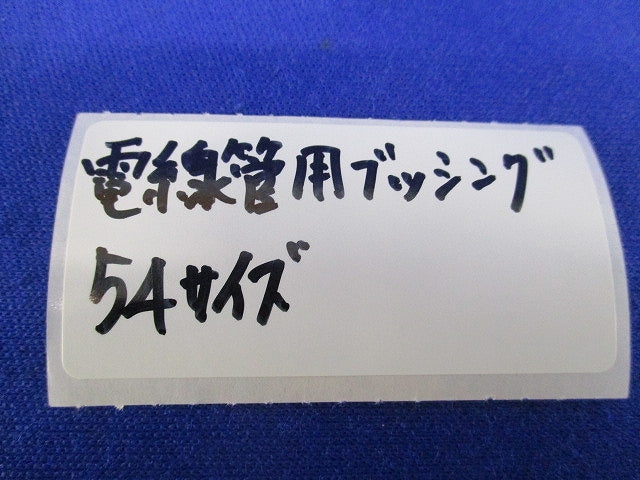 電線管用ブッシング
54サイズ